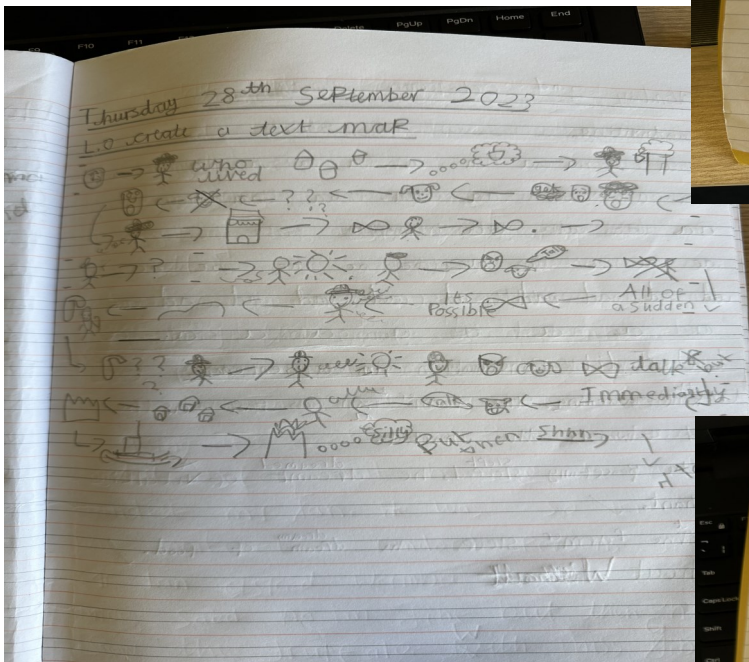 F9 F10 F11 Delete PgUp PgDn Home End
Thursday 28th September 2023
L.O create a text map
who
lived
? ?
? ?
?
Its
Possible
All of
a sudden
? ?
?
talk
Immediatly
talk
Silly
But then
Esc
Tab
Caps Lock
Shift
Ctrl